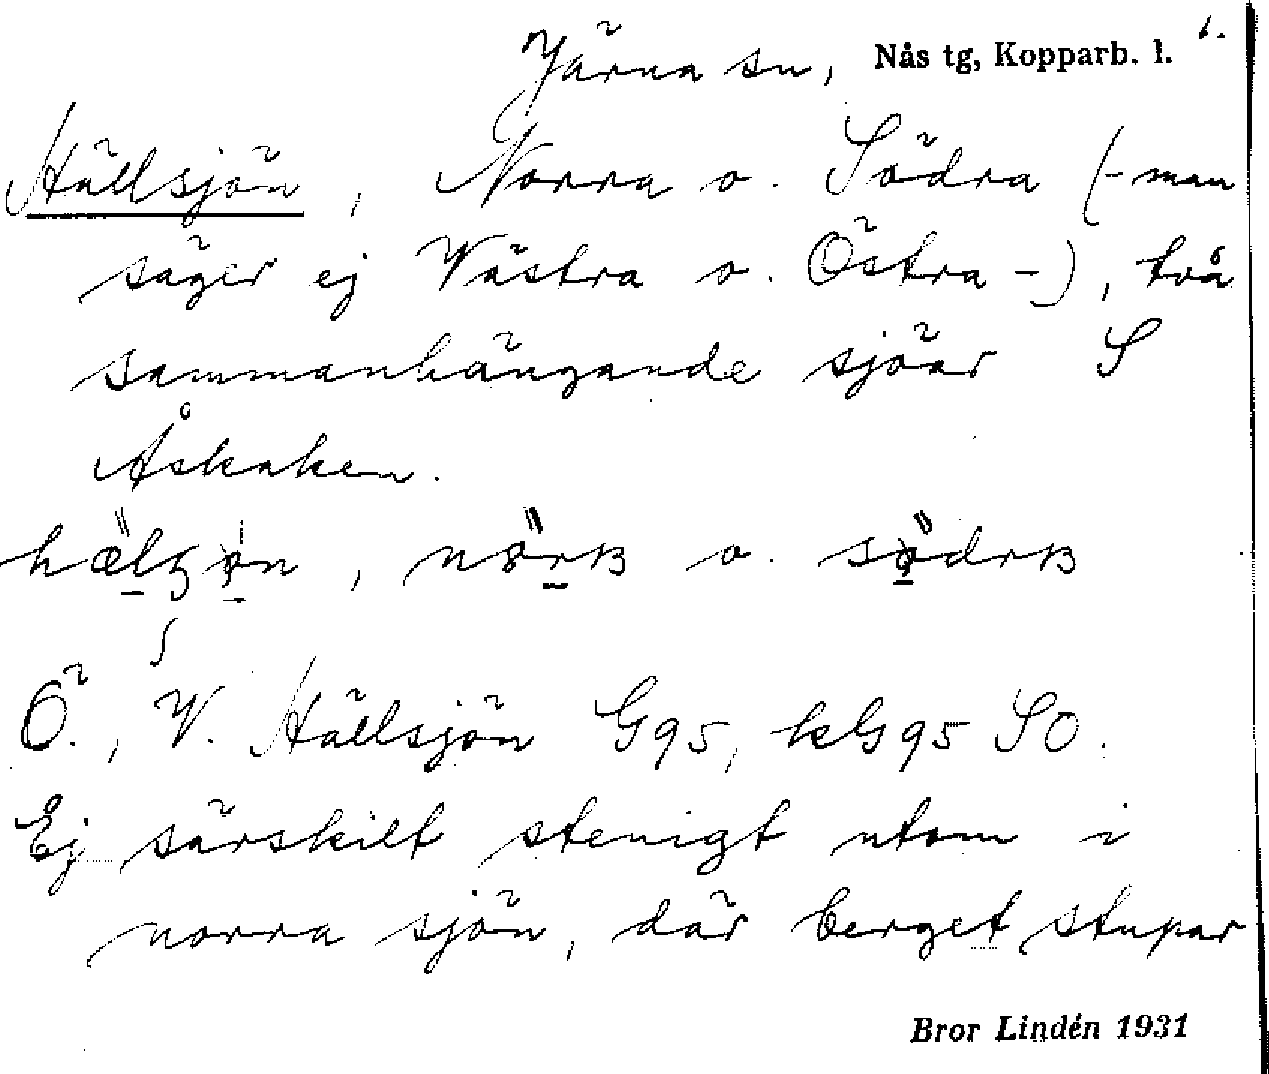 Järna sn, Nås tg, Kopparb. l. 1.
Hällsjön, Norra o. Södra (- man
säger ej Västra o. Östra -), två
sammanhängande sjöar S
Åskaken.
o. 
Ö., V. Hällsjön G95, hkG95 SO.
Ej särskilt stenigt utom i
norra sjön, där berget stupar
Bror Lindén 1931